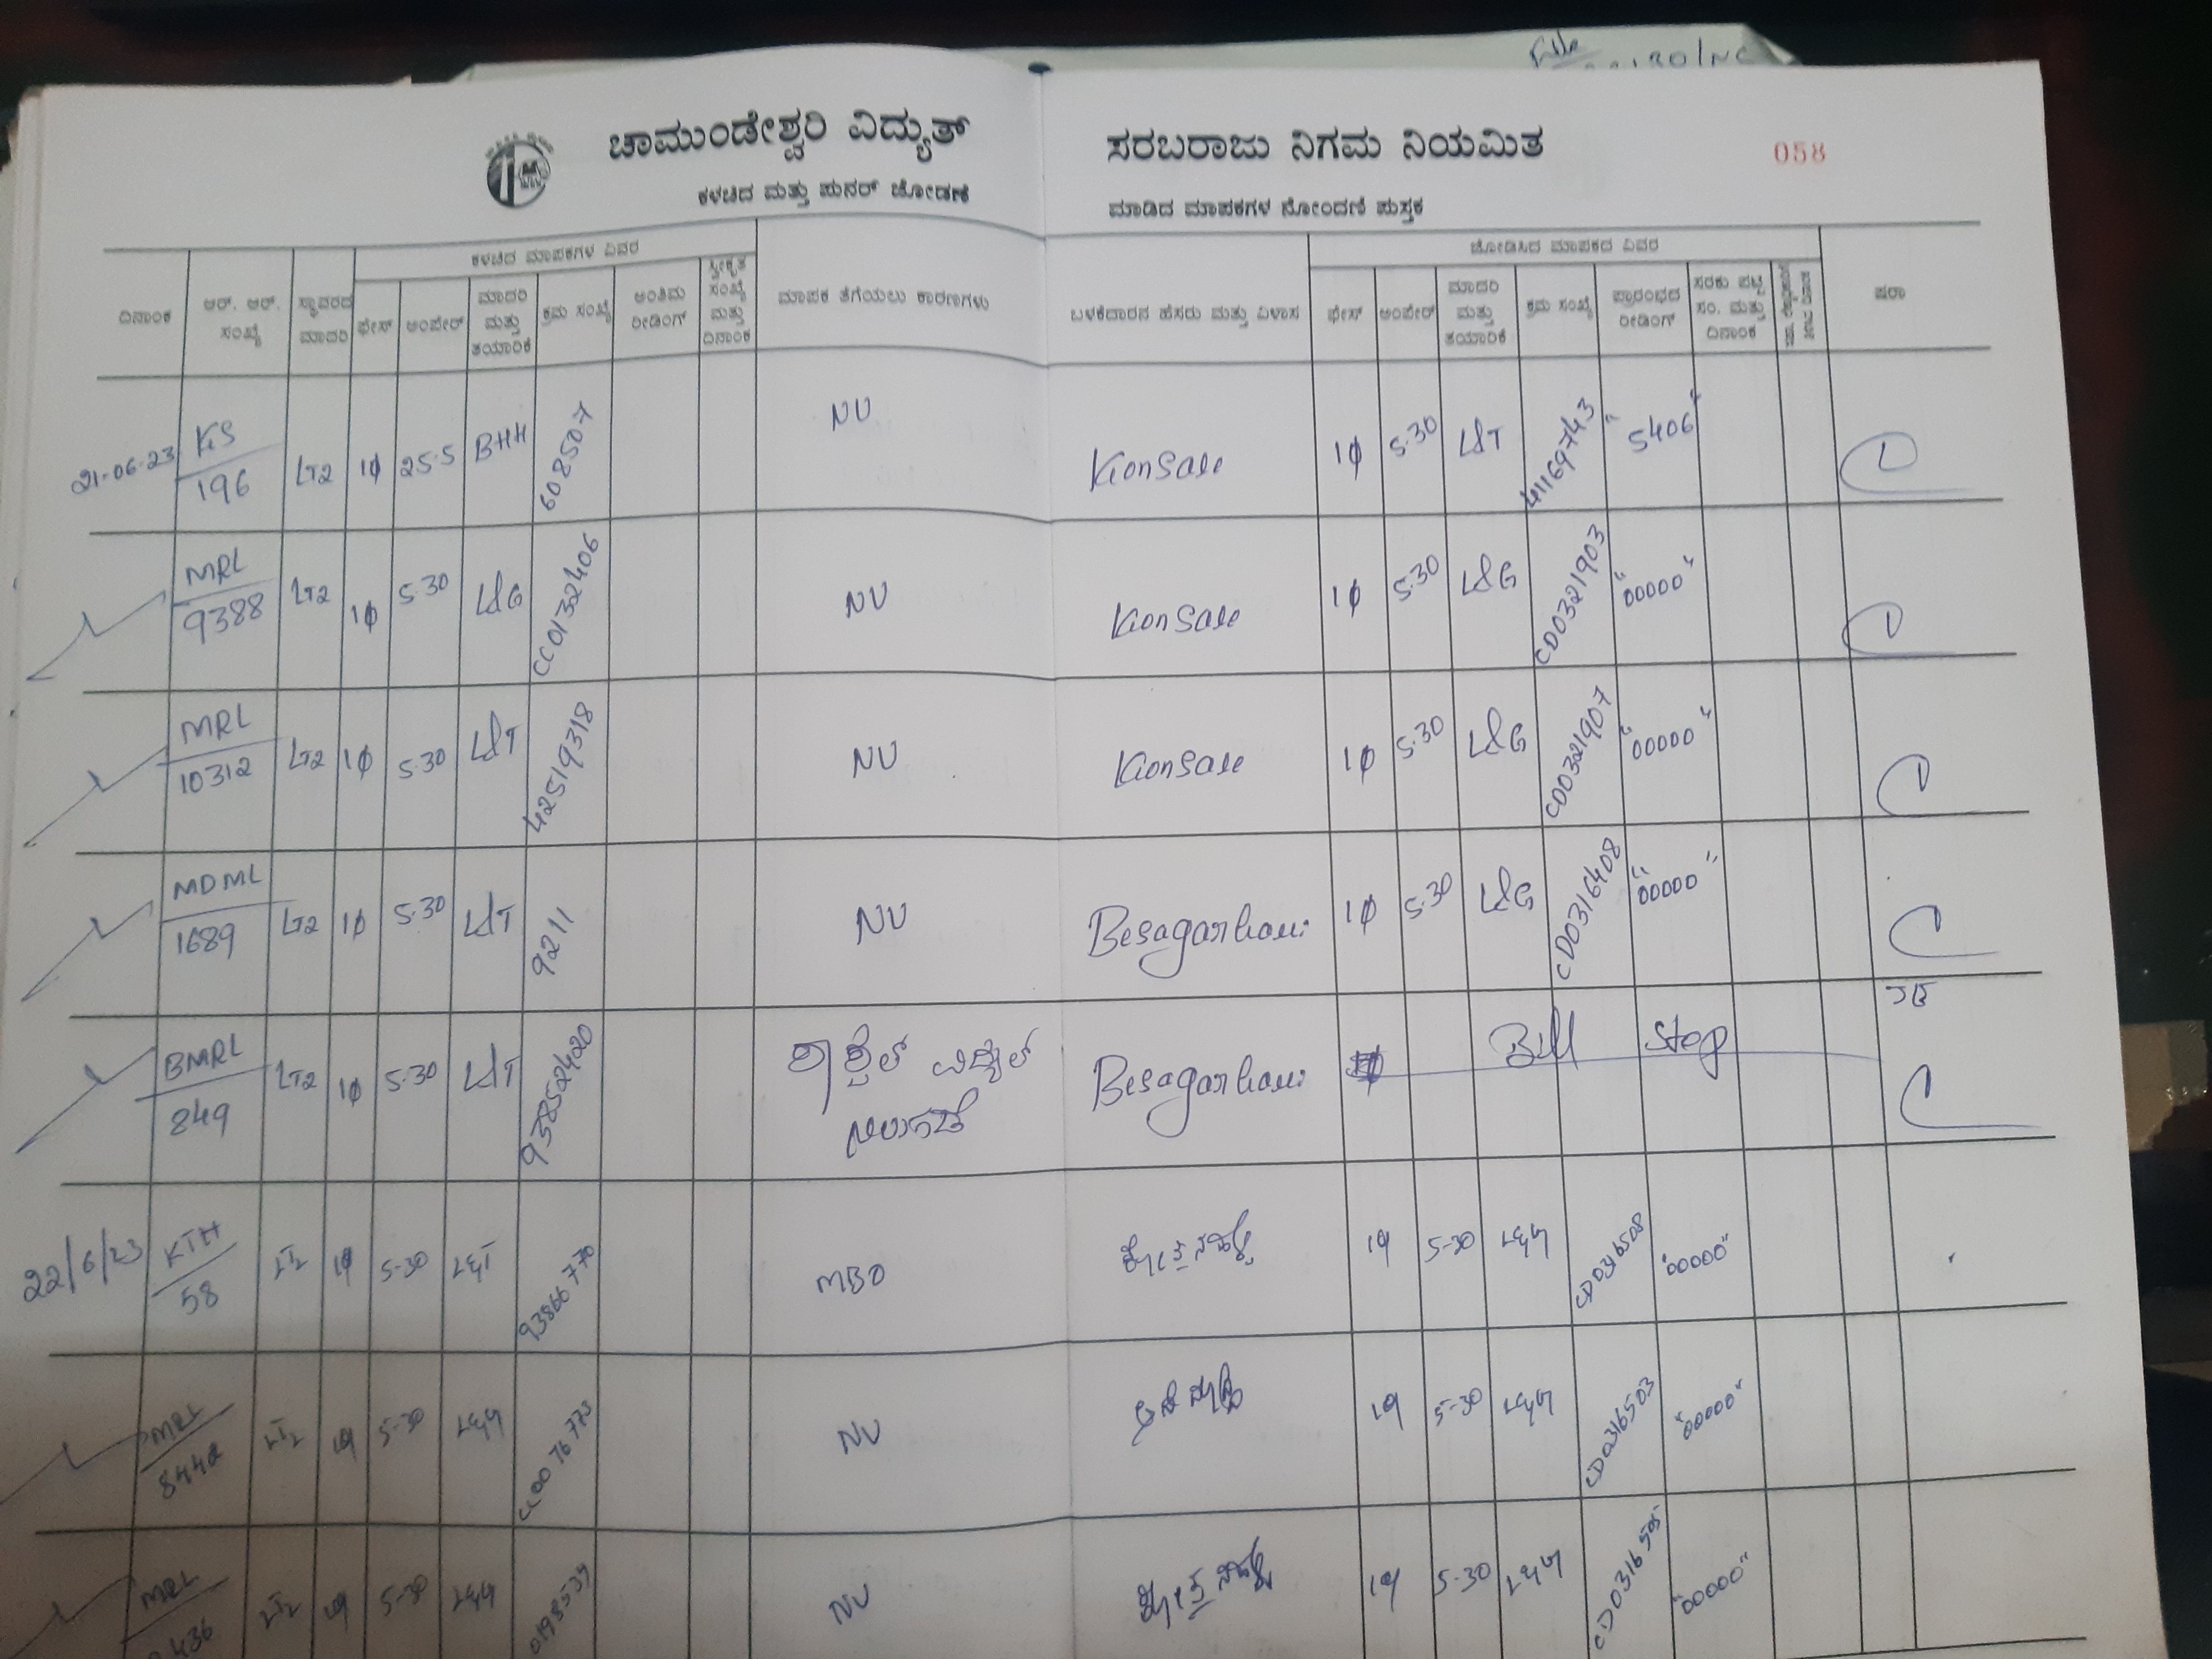 ಚಾಮುಂಡೇಶ್ವರಿ ವಿದ್ಯುತ್ ಸರಬರಾಜು ನಿಗಮ ನಿಯಮಿತ 058
ಕಳಚಿದ ಮತ್ತು ಪುನರ್ ಜೋಡಣೆ ಮಾಡಿದ ಮಾಪಕಗಳ ನೋಂದಣಿ ಪುಸ್ತಕ
ಕಳಚಿದ ಮಾಪಕಗಳ ವಿವರ ಜೋಡಿಸಿದ ಮಾಪಕದ ವಿವರ
ದಿನಾಂಕ ಆರ್. ಆರ್. ಸಂಖ್ಯೆ ಸ್ಥಾವರದ ಮಾದರಿ ಫೇಸ್ ಆಂಪೇರ್ ಮಾದರಿ ಮತ್ತು ತಯಾರಿಕೆ ಕ್ರಮ ಸಂಖ್ಯೆ ಅಂತಿಮ ರೀಡಿಂಗ್ ಸ್ವೀಕೃತ ಸಂಖ್ಯೆ ಮತ್ತು ದಿನಾಂಕ ಮಾಪಕ ತೆಗೆಯಲು ಕಾರಣಗಳು ಬಳಕೆದಾರನ ಹೆಸರು ಮತ್ತು ವಿಳಾಸ ಫೇಸ್ ಆಂಪೇರ್ ಮಾದರಿ ಮತ್ತು ತಯಾರಿಕೆ ಕ್ರಮ ಸಂಖ್ಯೆ ಪ್ರಾರಂಭದ ರೀಡಿಂಗ್ ಸರಕು ಪಟ್ಟಿ ಸಂ. ಮತ್ತು ದಿನಾಂಕ ಷರಾ
21-06-23 KS/196 LT2 1ϕ 25.5 BHH 6028507 NV Konsale 1ϕ 5.30 L&T 41169743 "5406"
MRL/9388 LT2 1ϕ 5.30 L&G CC0132406 NV Konsale 1ϕ 5.30 L&G CD0321903 "00000"
MRL/10312 LT2 1ϕ 5.30 L&T 42519318 NV Konsale 1ϕ 5.30 L&G CD0321907 "00000"
MDML/1689 LT2 1ϕ 5.30 L&T 9211 NV Besagarhalli 1ϕ 5.30 L&G CD0316408 "00000"
BMRL/849 LT2 1ϕ 5.30 L&T 93852420 Besagarhalli Bill Stop
22/6/23 KTH/58 LT2 1ϕ 5-30 L&T 93866770 MBO 1ϕ 5-30 L&G CD0316508 "00000"
MRL/8442 LT2 1ϕ 5-30 L&G CC0076773 NV 1ϕ 5-30 L&G CD0316503 "00000"
MRL LT2 1ϕ 5-30 L&G NV 1ϕ 5-30 L&G CD0316505 "00000"